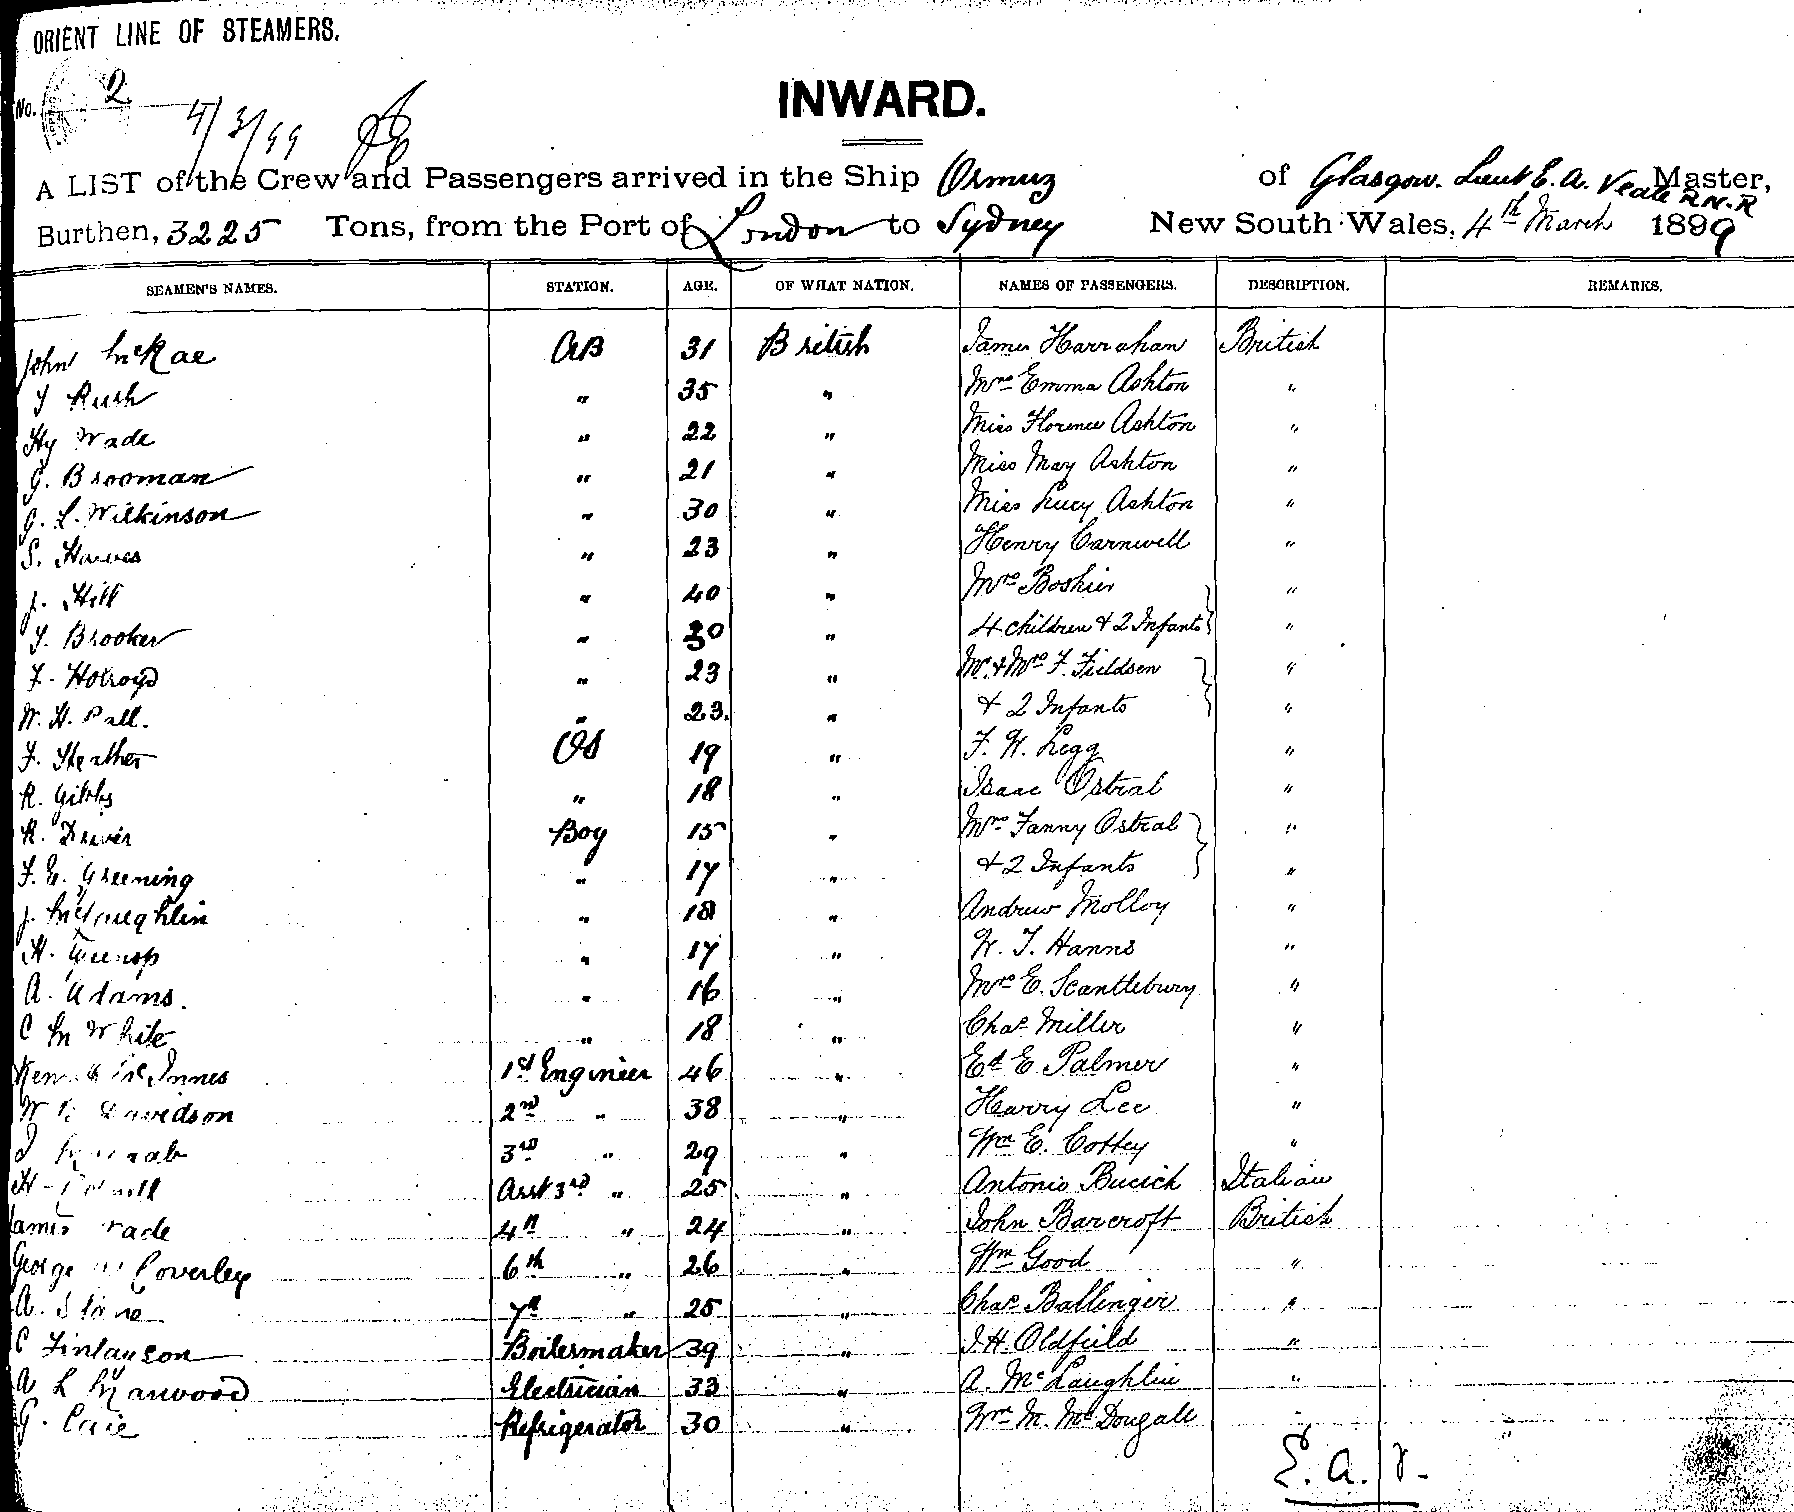 ORIENT LINE OF STEAMERS.
No. 2
4/3/99
INWARD.
A LIST of the Crew and Passengers arrived in the Ship Ormuz of Glasgow. Lieut E. A. Veale R.N.R Master,
Burthen, 3225 Tons, from the Port of London to Sydney New South Wales, 4th March 1899
SEAMEN'S NAMES. STATION. AGE. OF WHAT NATION. NAMES OF PASSENGERS. DESCRIPTION. REMARKS.
John McRae AB 31 British James Harrahan British
Rush " 35 " Mrs Emma Ashton "
Hy Wade " 22 " Miss Florence Ashton "
G. Brooman " 21 " Miss May Ashton "
G. L. Wilkinson " 30 " Miss Lucy Ashton "
S. Hawes " 23 " Henry Carnwell "
J. Hill " 40 " Mrs Boshier "
Brooker " 30 " 4 children & 2 Infants "
F. Holroyd " 23 " Mr. & Mrs F. Fieldsen "
W. H. Pall. " 23. " & 2 Infants "
F. Heather OS 19 " F. W. Legg "
R. Gibbs " 18 " Isaac Ostral "
R. Boy 15 " Mrs Fanny Ostral "
F. E. Greening " 17 " & 2 Infants "
J. McLaughlin " 18 " Andrew Molloy "
H. " 17 " W. T. Hanns "
A. Adams. " 16 " Mrs E. Scantlebury "
C M White " 18 " Chas Miller "
McInnes 1st Engineer 46 " Ed E. Palmer "
W Davidson 2nd " 38 " Harry Lee "
3rd " 29 " Wm E. Cottey "
H Asst 3rd " 25 " Antonio Bucich Italian
James 4th " 24 " John Barcroft British
George Coverley 6th " 26 " Wm Good "
A. Stone 7th " 25 " Chas Ballenger "
C Finlayson Boilermaker 39 " J. H. Oldfield "
A L Marwood Electrician 33 " A. McLaughlin "
G. Caie Refrigerator 30 " Wm M. McDougall "
E. A. V.